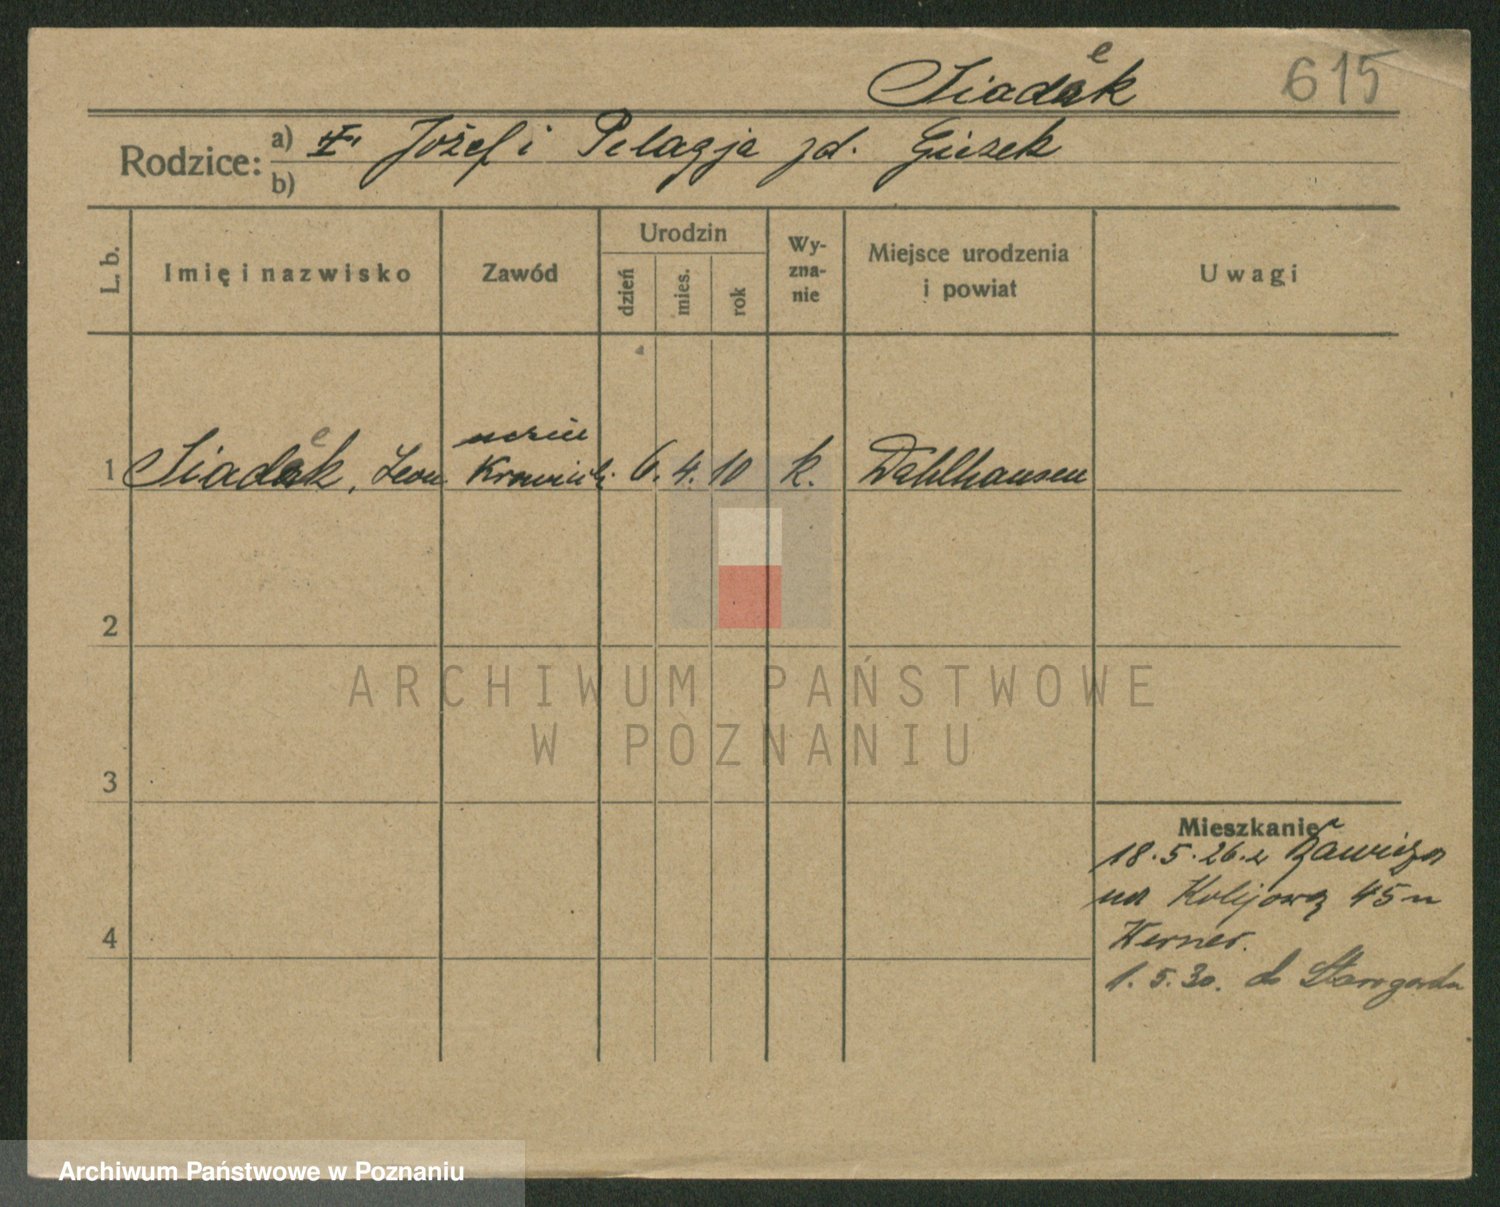 Siadak
e
615
Rodzice: a) I. Józef i Pelagja zd. Giezek
b)
L. b. Imię i nazwisko Zawód Urodzin dzień mies. rok Wyznanie Miejsce urodzenia i powiat Uwagi
e uczeń
1 Siadak, Leon Krawiecki 6. 4. 10 k. Dahlhausen
2
ARCHIWUM PAŃSTWOWE
W POZNANIU
3
4
Mieszkanie
18.5.26. z
na Kolejową 45 u
Werner.
1.5.30. do Starogardu
Archiwum Państwowe w Poznaniu